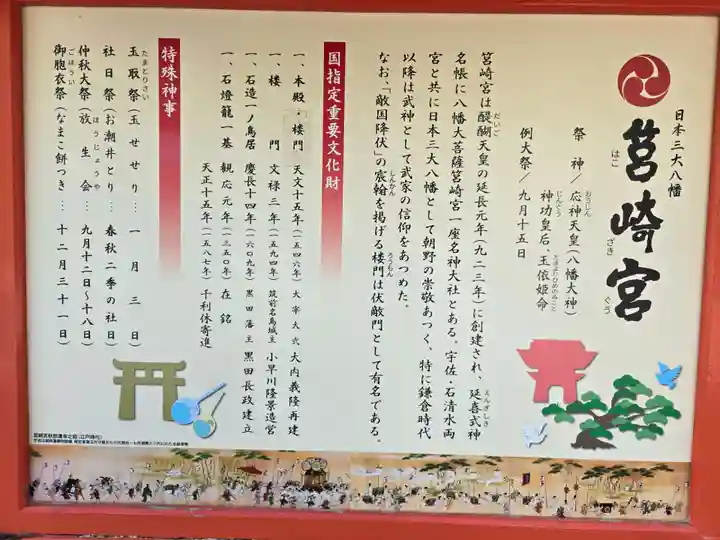 日本三大八幡
筥崎宮
はこ ざき ぐう
祭神/応神天皇(八幡大神)
おうじん
神功皇后、玉依姫命
じんぐう たまよりひめのみこと
例大祭/九月十五日
筥崎宮は醍醐天皇の延長元年(九二三年)に創建され、延喜式神
だいご えんぎしき
名帳に八幡大菩薩筥崎宮一座名神大社とある。宇佐・石清水両
宮と共に日本三大八幡として朝野の崇敬あつく、特に鎌倉時代
以降は武神として武家の信仰をあつめた。
なお、「敵国降伏」の宸翰を掲げる楼門は伏敵門として有名である。
しんかん ろうもん
国指定重要文化財
一、本殿・楼門 天文十五年(一五四六年) 大宰大弐 大内義隆再建
一、楼門 文禄三年(一五九四年) 筑前名島城主 小早川隆景造営
一、石造一ノ鳥居 慶長十四年(一六〇九年) 黒田藩主 黒田長政建立
一、石燈籠一基 観応元年(一三五〇年) 在銘
天正十五年(一五八七年) 千利休寄進
特殊神事
玉取祭(玉せせり)… 一月三日
たまとりさい
社日祭(お潮井とり)… 春秋二季の社日
仲秋大祭(放生会)… 九月十二日〜十八日
ほうじょうや
御胞衣祭(なまこ餅つき)… 十二月三十一日
ごほうい